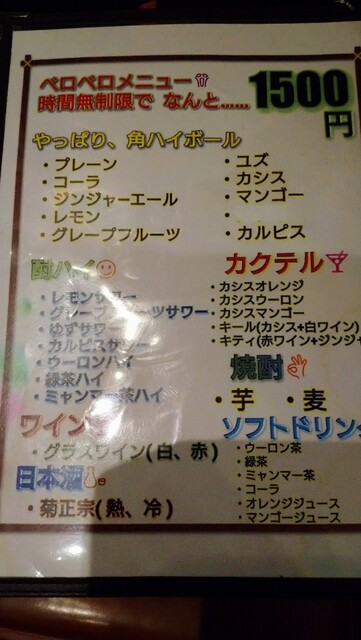 ベロベロメニュー
時間無制限で なんと……
1500円
やっぱり、角ハイボール
・プレーン
・コーラ
・ジンジャーエール
・レモン
・グレープフルーツ
・ユズ
・カシス
・マンゴー
・
・カルピス
酎ハイ
・レモンサワー
・グレープフルーツサワー
・ゆずサワー
・カルピスサワー
・ウーロンハイ
・緑茶ハイ
・ミャンマー茶ハイ
カクテル
・カシスオレンジ
・カシスウーロン
・カシスマンゴー
・キール(カシス+白ワイン)
・キティ(赤ワイン+ジンジャ
焼酎
・芋 ・麦
ワイン
・グラスワイン(白、赤)
日本酒
・菊正宗(熱、冷)
ソフトドリン
・ウーロン茶
・緑茶
・ミャンマー茶
・コーラ
・オレンジジュース
・マンゴージュース